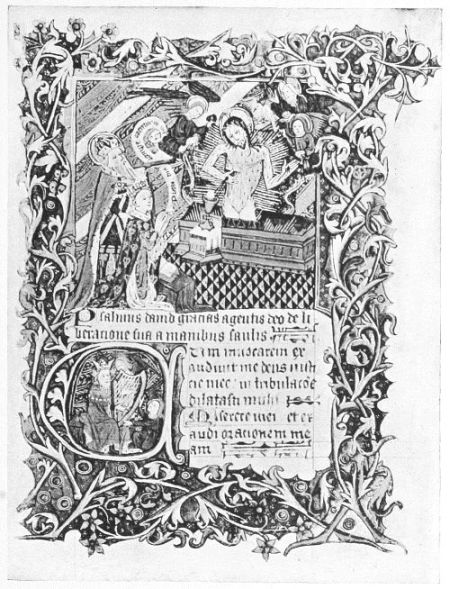 Psalmus david gracias agentis deo de li
beratione sua a manibus saulis
Cum invocarem ex
audivit me deus iusti
cie mee in tribulacõe
dilatasti michi
Miserere mei et ex
audi orationem me
am